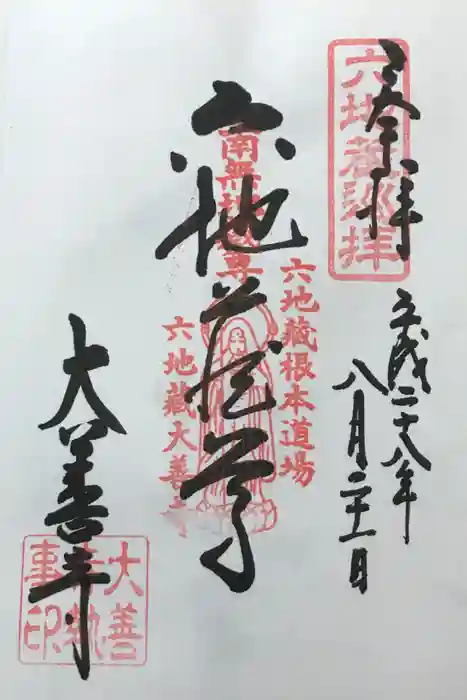 奉拝
六地蔵巡拝
平成二十八年
八月二十一日
六地蔵尊
南無地蔵尊
六地蔵根本道場
六地蔵大善寺
大善寺
大善寺執事印